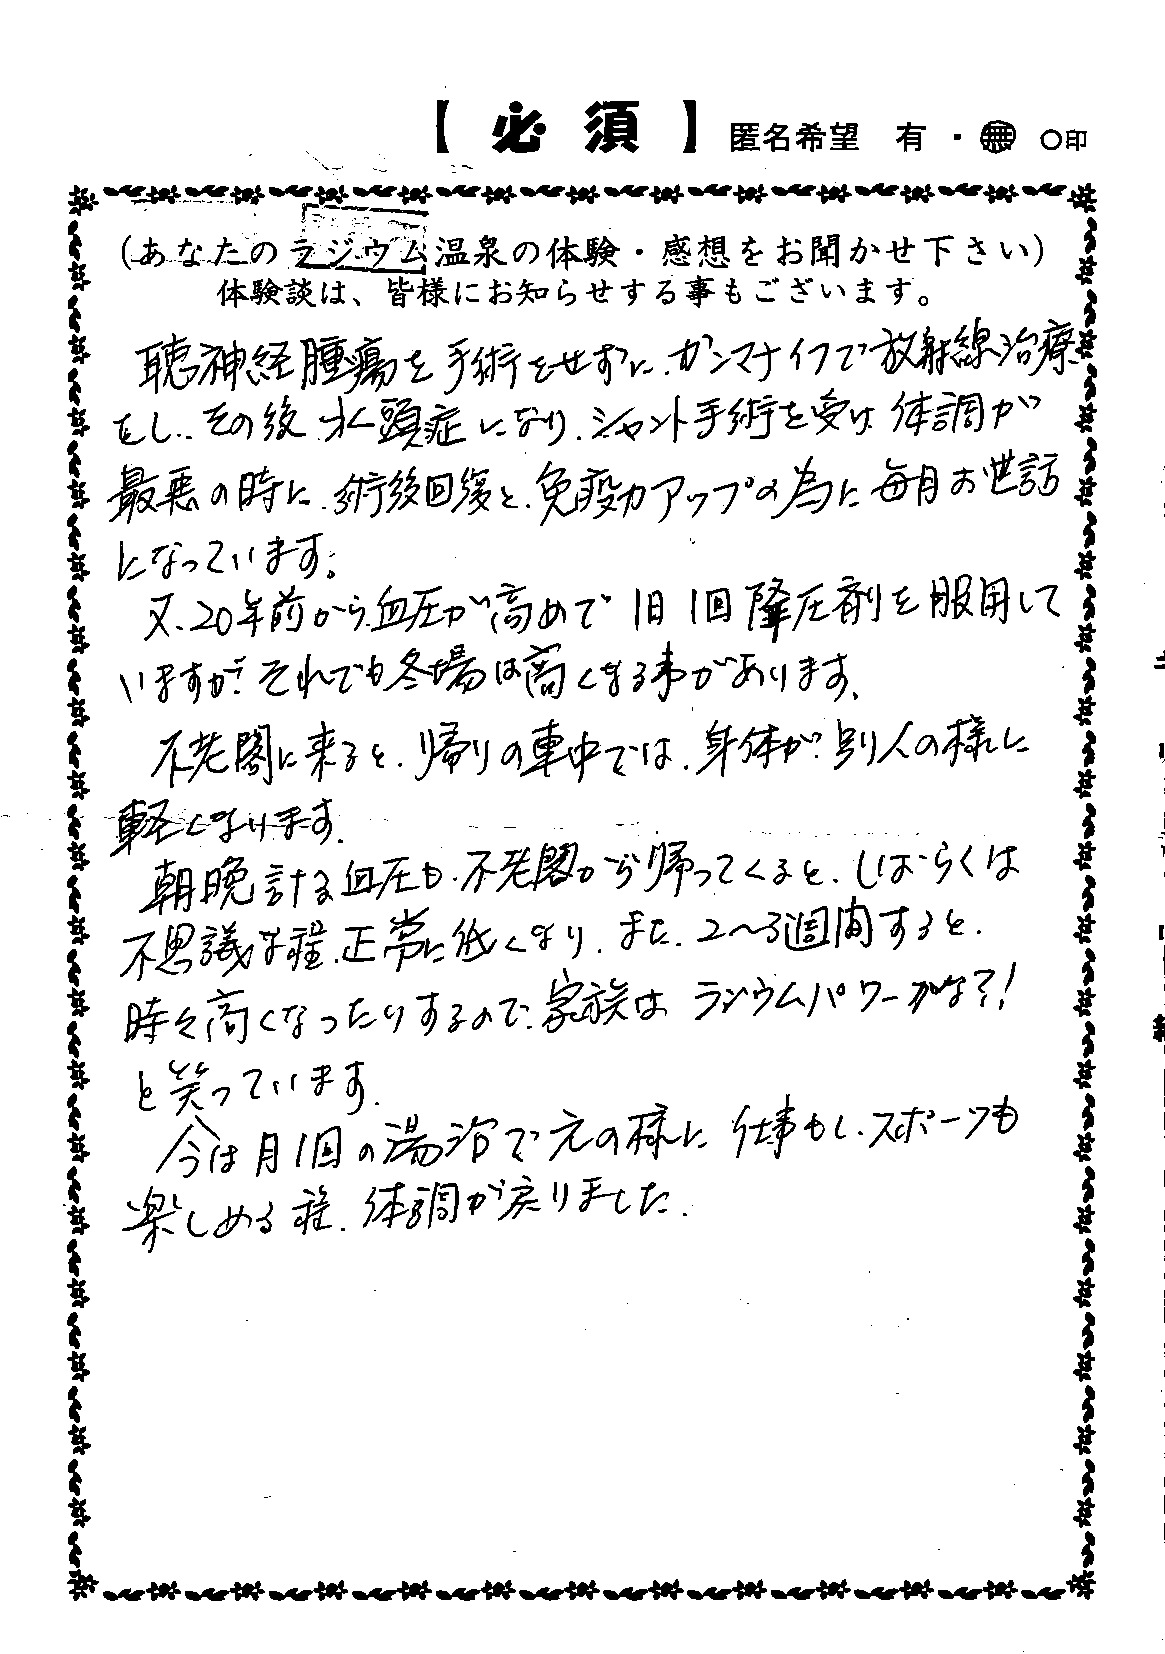 【必須】 匿名希望 有・無 ○印
(あなたのラジウム温泉の体験・感想をお聞かせ下さい)
体験談は、皆様にお知らせする事もございます。
聴神経腫瘍を手術をせずに、ガンマナイフで放射線治療
をし、その後、水頭症になり、シャント手術を受け、体調が
最悪の時に、術後回復と、免疫力アップの為に毎月お世話
になっています。
又、20年前から血圧が高めで1日1回降圧剤を服用して
いますが、それでも冬場は高くなる事があります。
不老閣に来ると、帰りの車中では、身体が、別人の様に
軽くなります。
朝晩計る血圧も、不老閣から帰ってくると、しばらくは
不思議な程、正常に低くなり、また、2〜3週間すると、
時々高くなったりするので、家族は ラジウムパワーかな?!
と笑っています。
今は月1回の湯治で元の様に 仕事もし、スポーツも
楽しめる程、体調が戻りました。